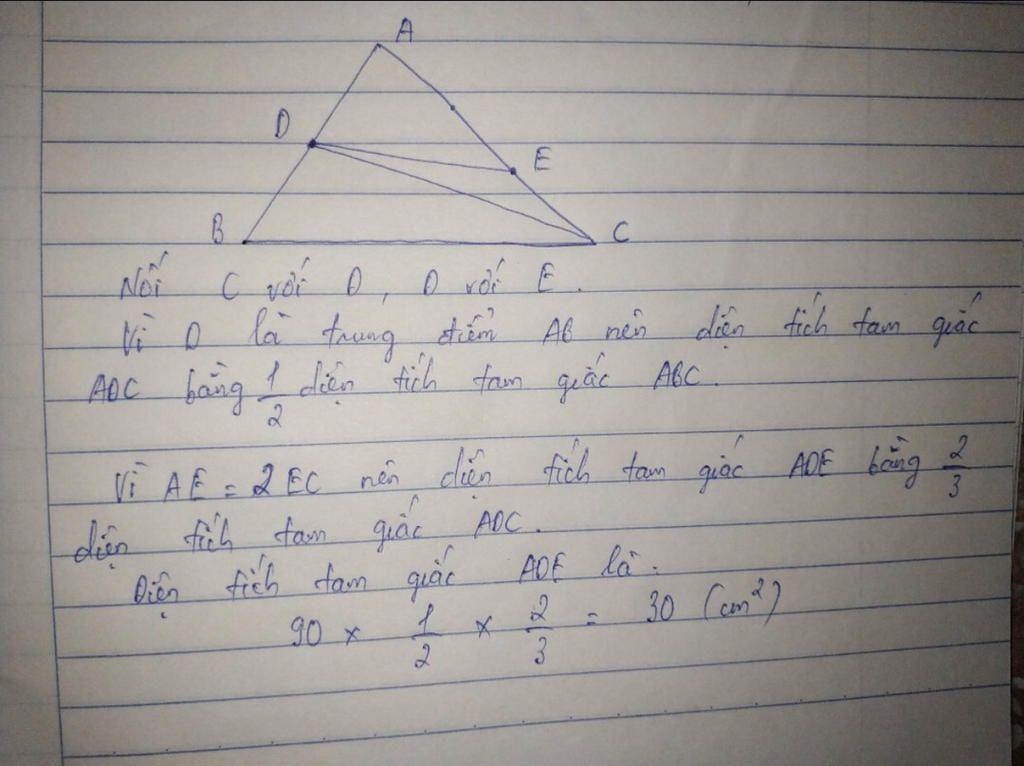 A
D
E
B
C
Nối C với D, D với E.
Vì D là trung điểm AB nên diện tích tam giác
ADC bằng 1/2 diện tích tam giác ABC.
Vì AE = 2 EC nên diện tích tam giác ADE bằng 2/3
diện tích tam giác ADC.
Diện tích tam giác ADE là:
90 x 1/2 x 2/3 = 30 (cm²)